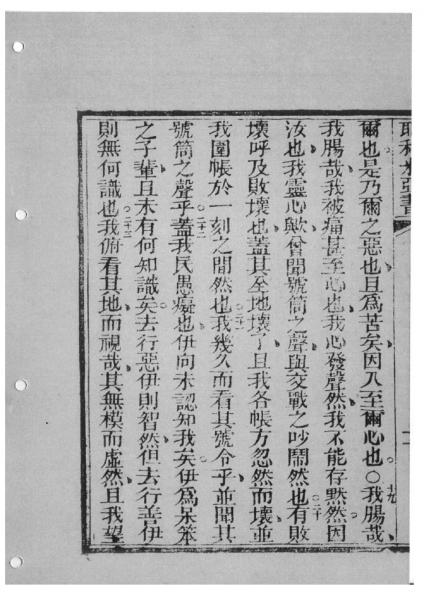 耶利米亞書
爾也是乃爾之惡也且爲苦矣因入至爾心也〇十九我腸哉
我腸哉我被痛甚至心也我心發聲然我不能存默然因
汝也我靈心歟曾聞號筒之聲與交戰之吵鬧然也二十有敗
壞呼及敗壞也蓋其至地壞了且我各帳方忽然而壞並
我圍帳於一刻之間然也二一我幾久而看其號令乎並聞其
號筒之聲乎二二蓋我民愚癡也伊向未認知我矣伊爲呆笨
之子輩且未有何知識矣去行惡伊則智然但去行善伊
則無何識也二三我俯看其地而視哉其無模而虛然且我望